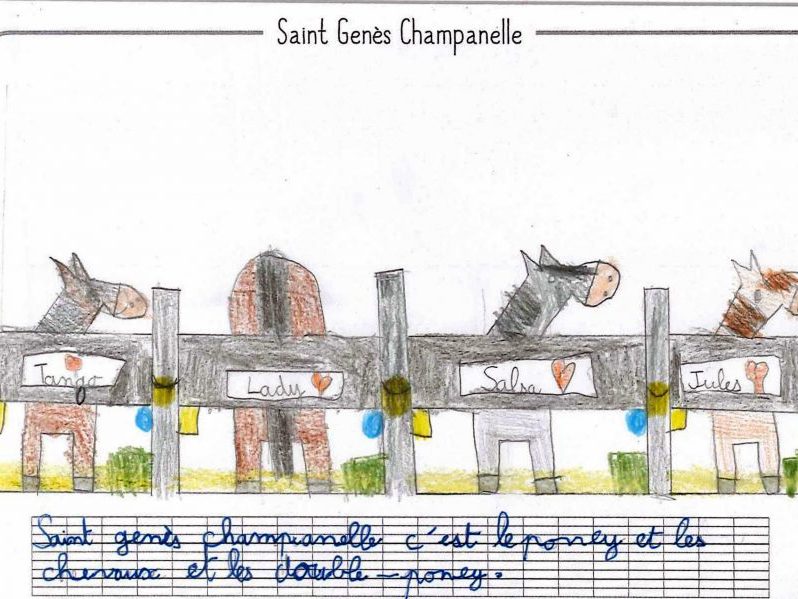 Saint Genès Champanelle
Tango
Lady
Salsa
Jules
Saint genès champanelle c'est le poney et les
chevaux et les double-poney.